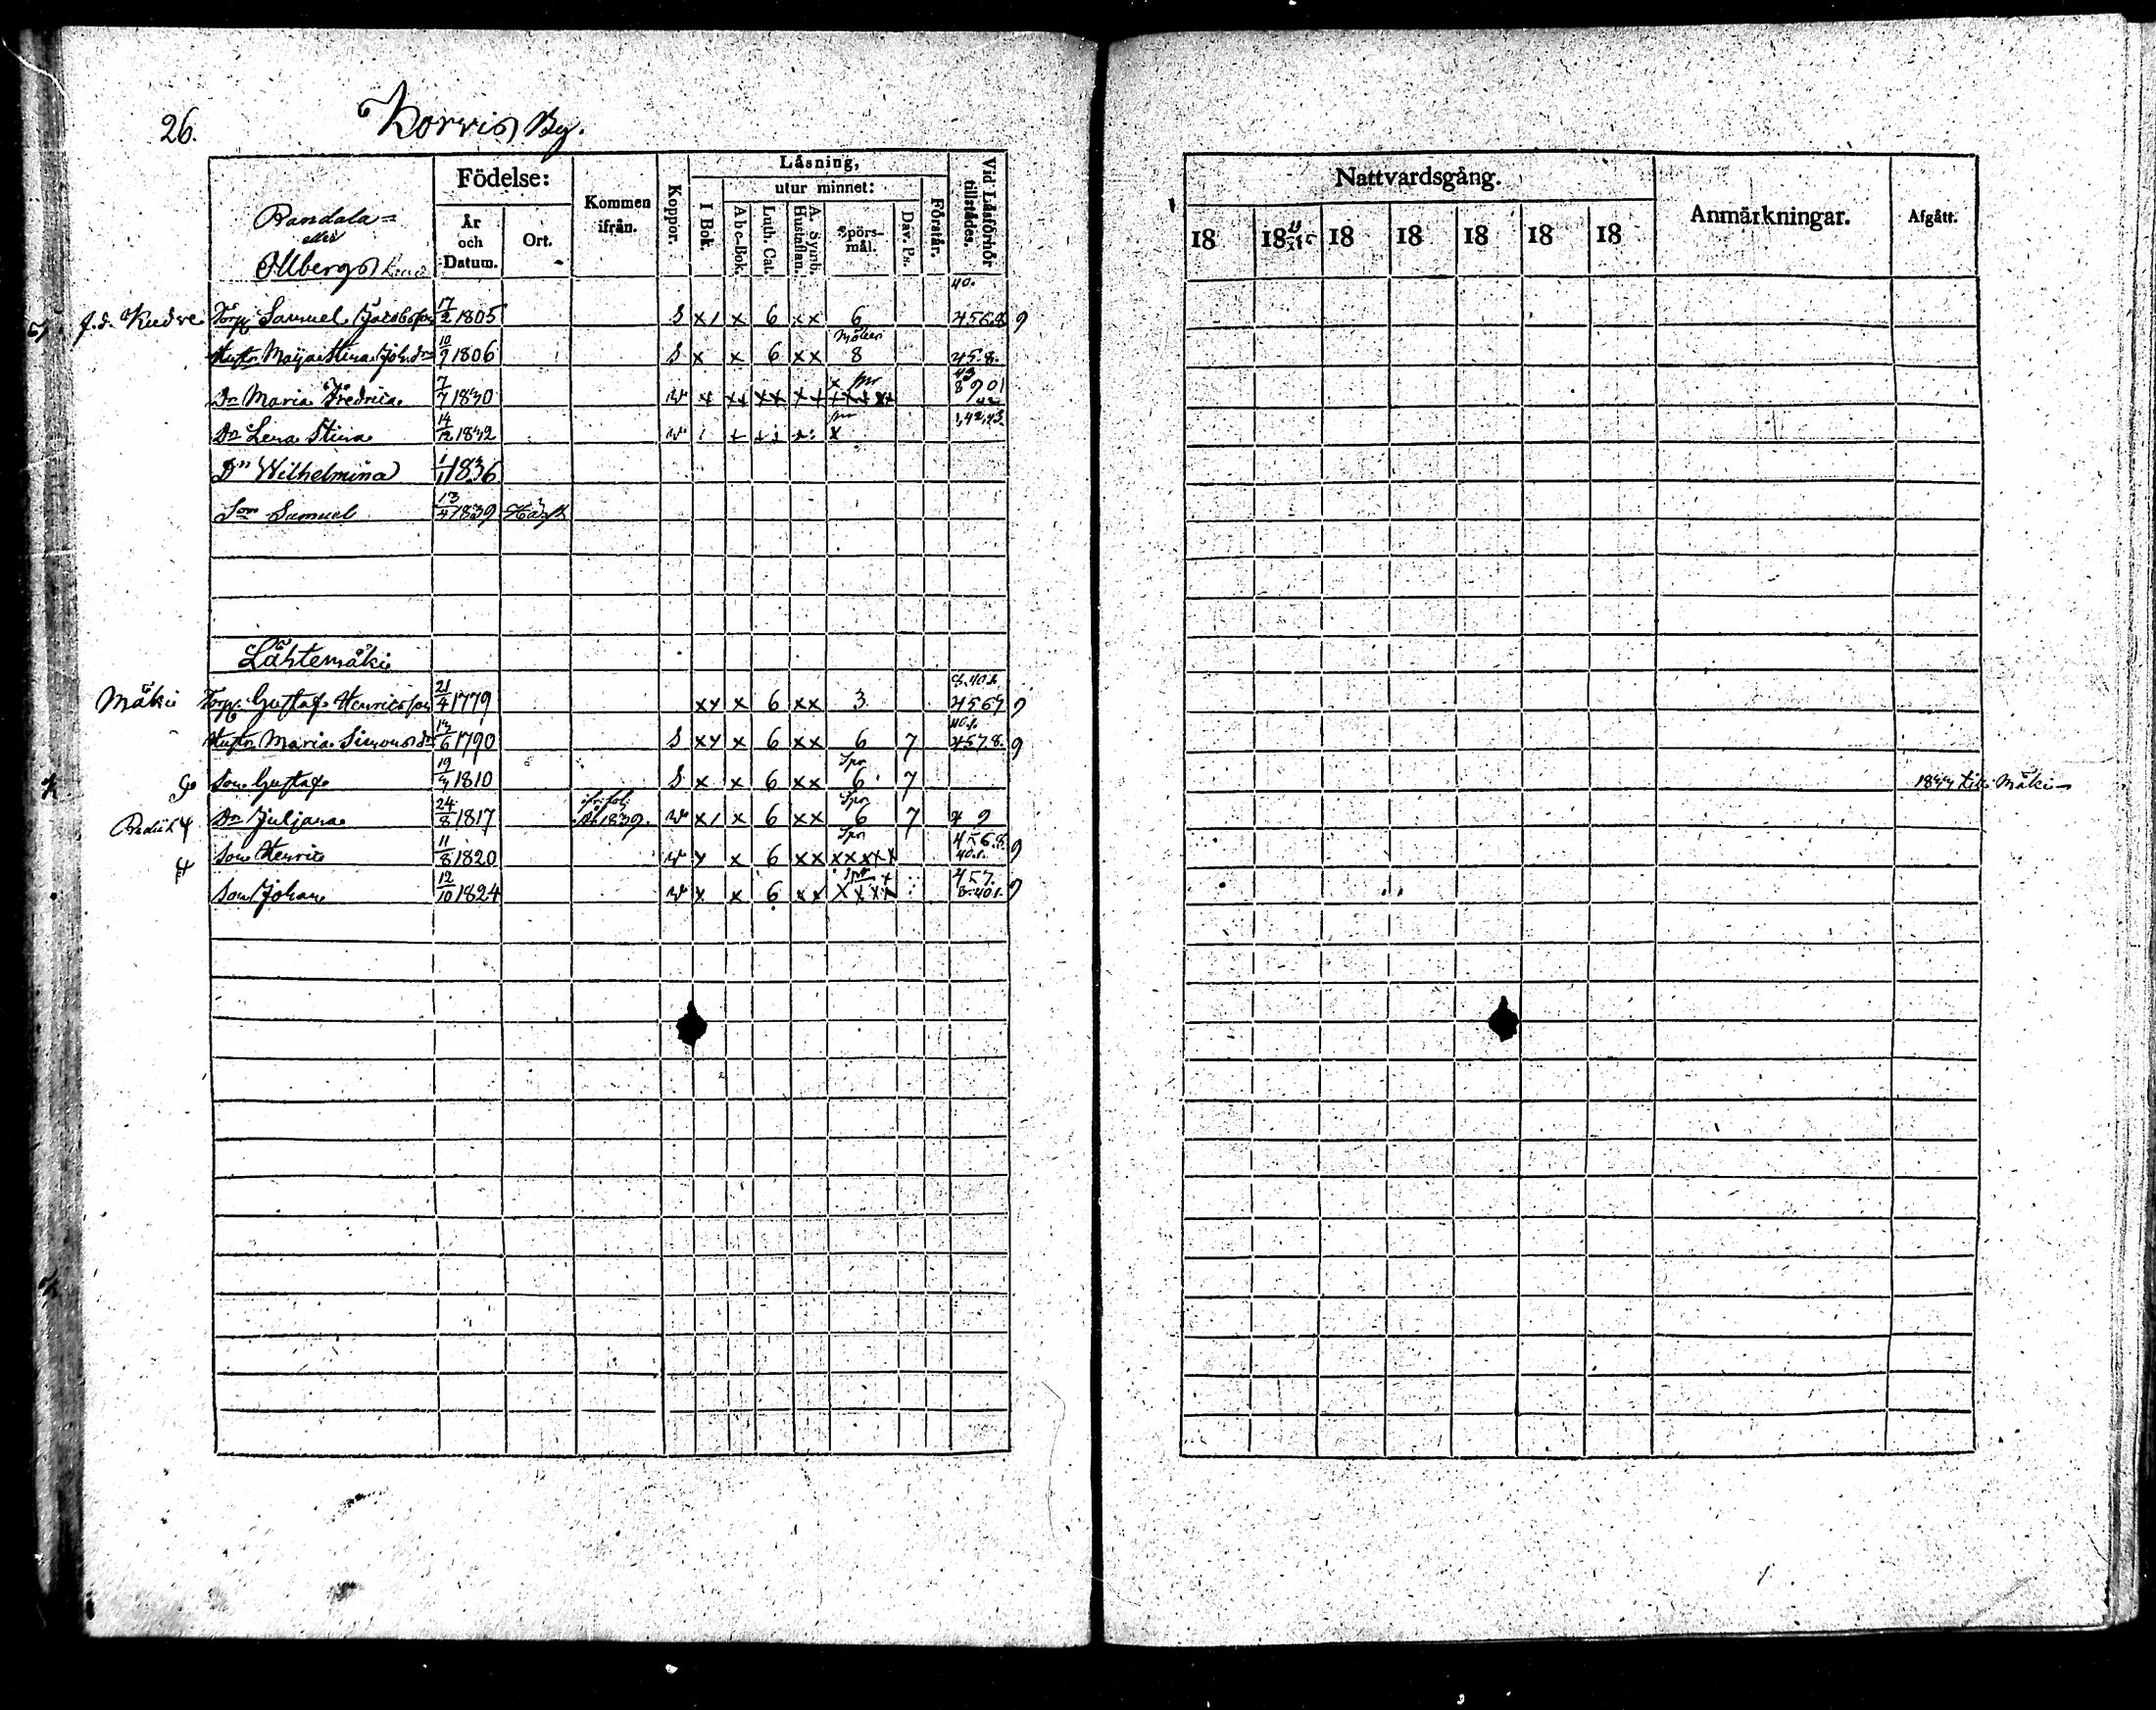 26. Korvis By.
Randala =
eller
Ollbergs
Födelse:
År
och
Datum.
Ort.
Kommen
ifrån.
Koppor.
Läsning,
I Bok.
utur minnet:
Abc-Bok.
Luth. Cat.
A. Symb.
Hustaflan.
Spörs-
mål.
Dav. Ps.
Förstår.
Vid Läsförhör
tillstådes.
40.
Torp. Samuel Jacobsson 17/2 1805 S x1 x 6 xx 6
Hustr. Maija Stina Joh.dr 10/9 1806 S x x 6 xx 8 458.
Dr Maria Fredrica 7/7 1830
Dr Lena Stina 14/12 1832 1,42,43.
Dr Wilhelmina 1/1 1836
Son Samuel 13/4 1839
Lähtemäki
Mäki Torp. Gustaf Henricsson 21/4 1779 xx x 6 xx 3 4567 9
Hustr. Maria Simonsdr 1790 S xx x 6 xx 6 7 4578. 9
Son Gustaf 1810 S x x 6 xx Spr 6 7
Dr Juliana 24/8 1817 1839. v x1 x 6 xx Spr 6 7 9
Son Henric 11/8 1820 v x x 6 xx Spr xxxxx 4568. 40.1. 9
Son Johan 12/10 1824 v x x 6 xx xxxx 457. 8.40.1. 9
Nattvardsgång.
18 18 18 18 18 18 18
Anmärkningar.
Afgått.
1844 till Mäki